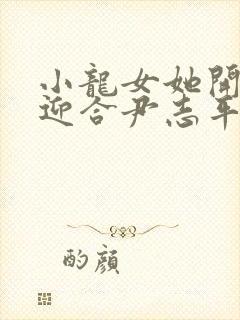 小龍女她開
迎合尹志平
酌顏